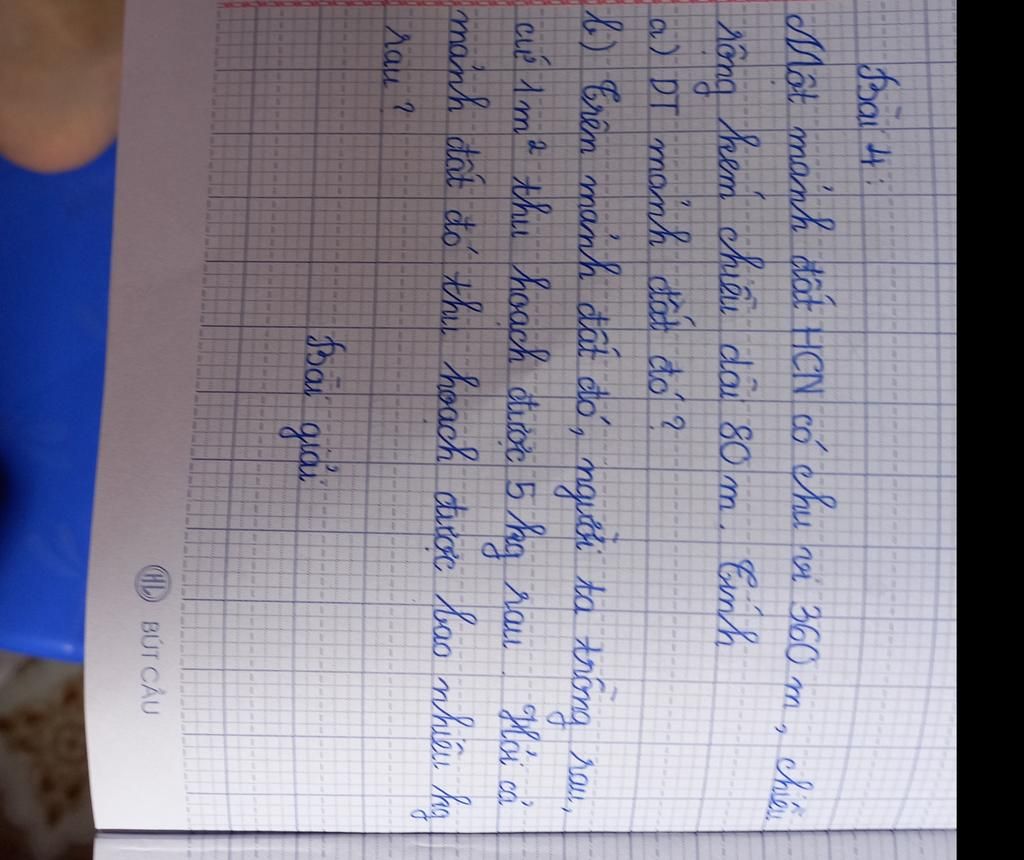 Bài 4:
Một mảnh đất HCN có chu vi 360 m, chiều
rộng kém chiều dài 80 m. Tính
a) DT mảnh đất đó?
b) Trên mảnh đất đó, người ta trồng rau,
cứ 1 m² thu hoạch được 5 kg rau. Hỏi cả
mảnh đất đó thu hoạch được bao nhiêu kg
rau?
Bài giải
HL BÚT CÂU